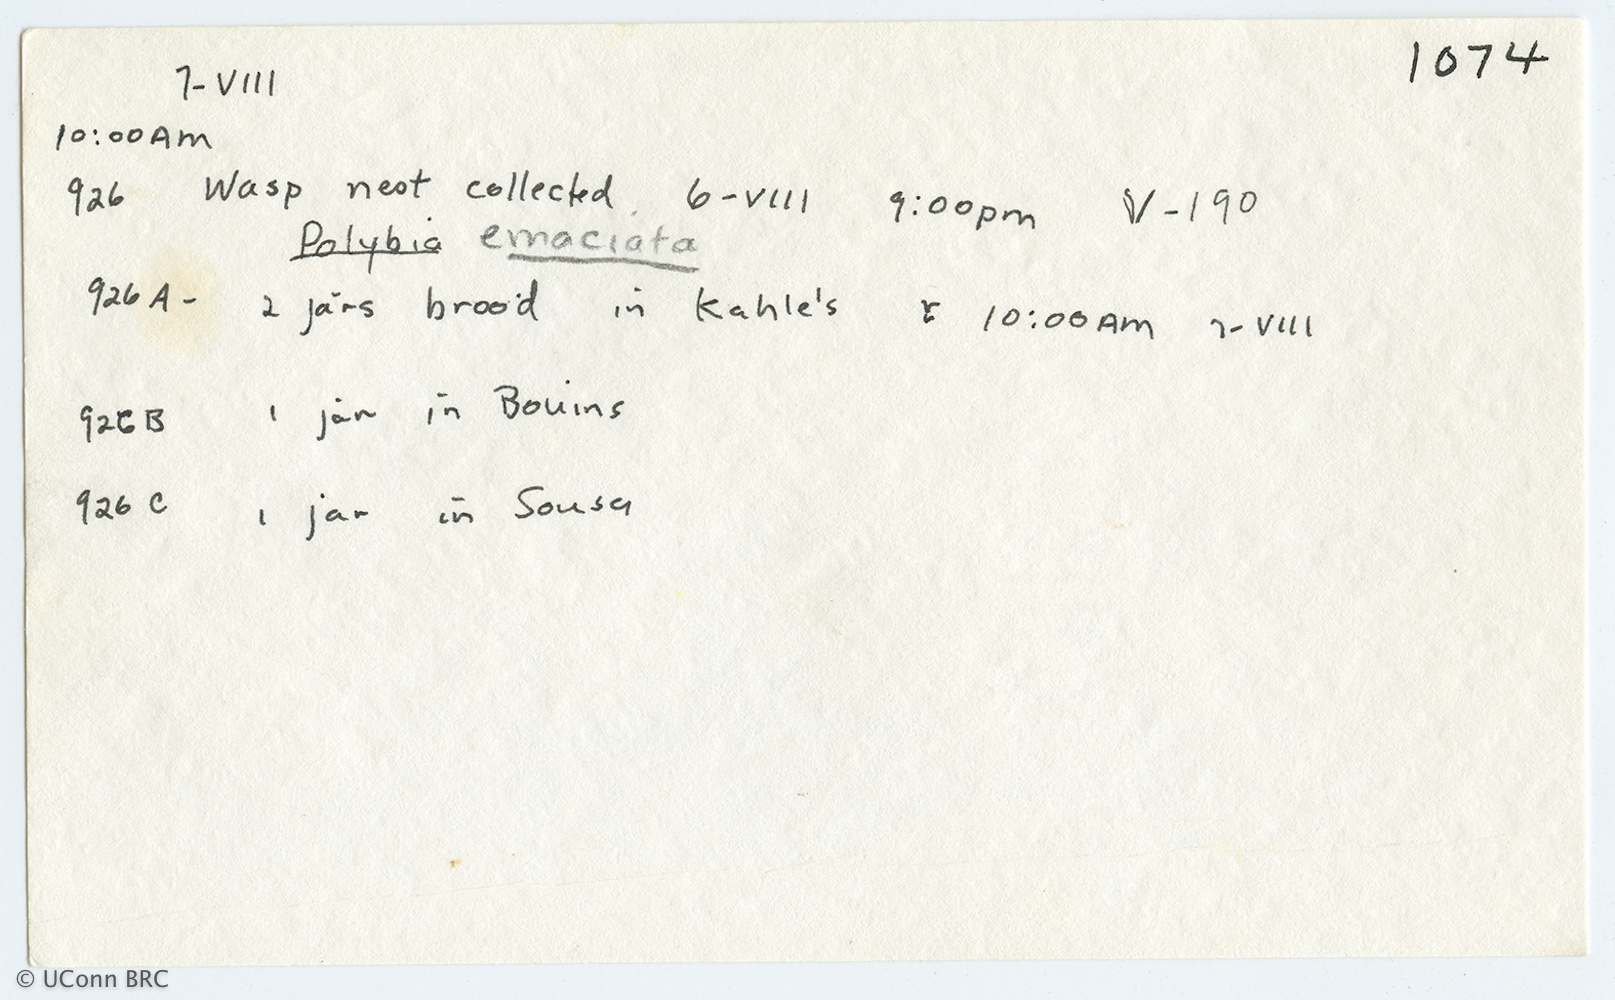 1074
7-VIII
10:00Am
926 Wasp nest collected 6-VIII 9:00pm V-190
Polybia emaciata
926 A- 2 jars brood in Kahle's 10:00AM 7-VIII
926 B 1 jar in Bouins
926 C 1 jar in Sousa
© UConn BRC